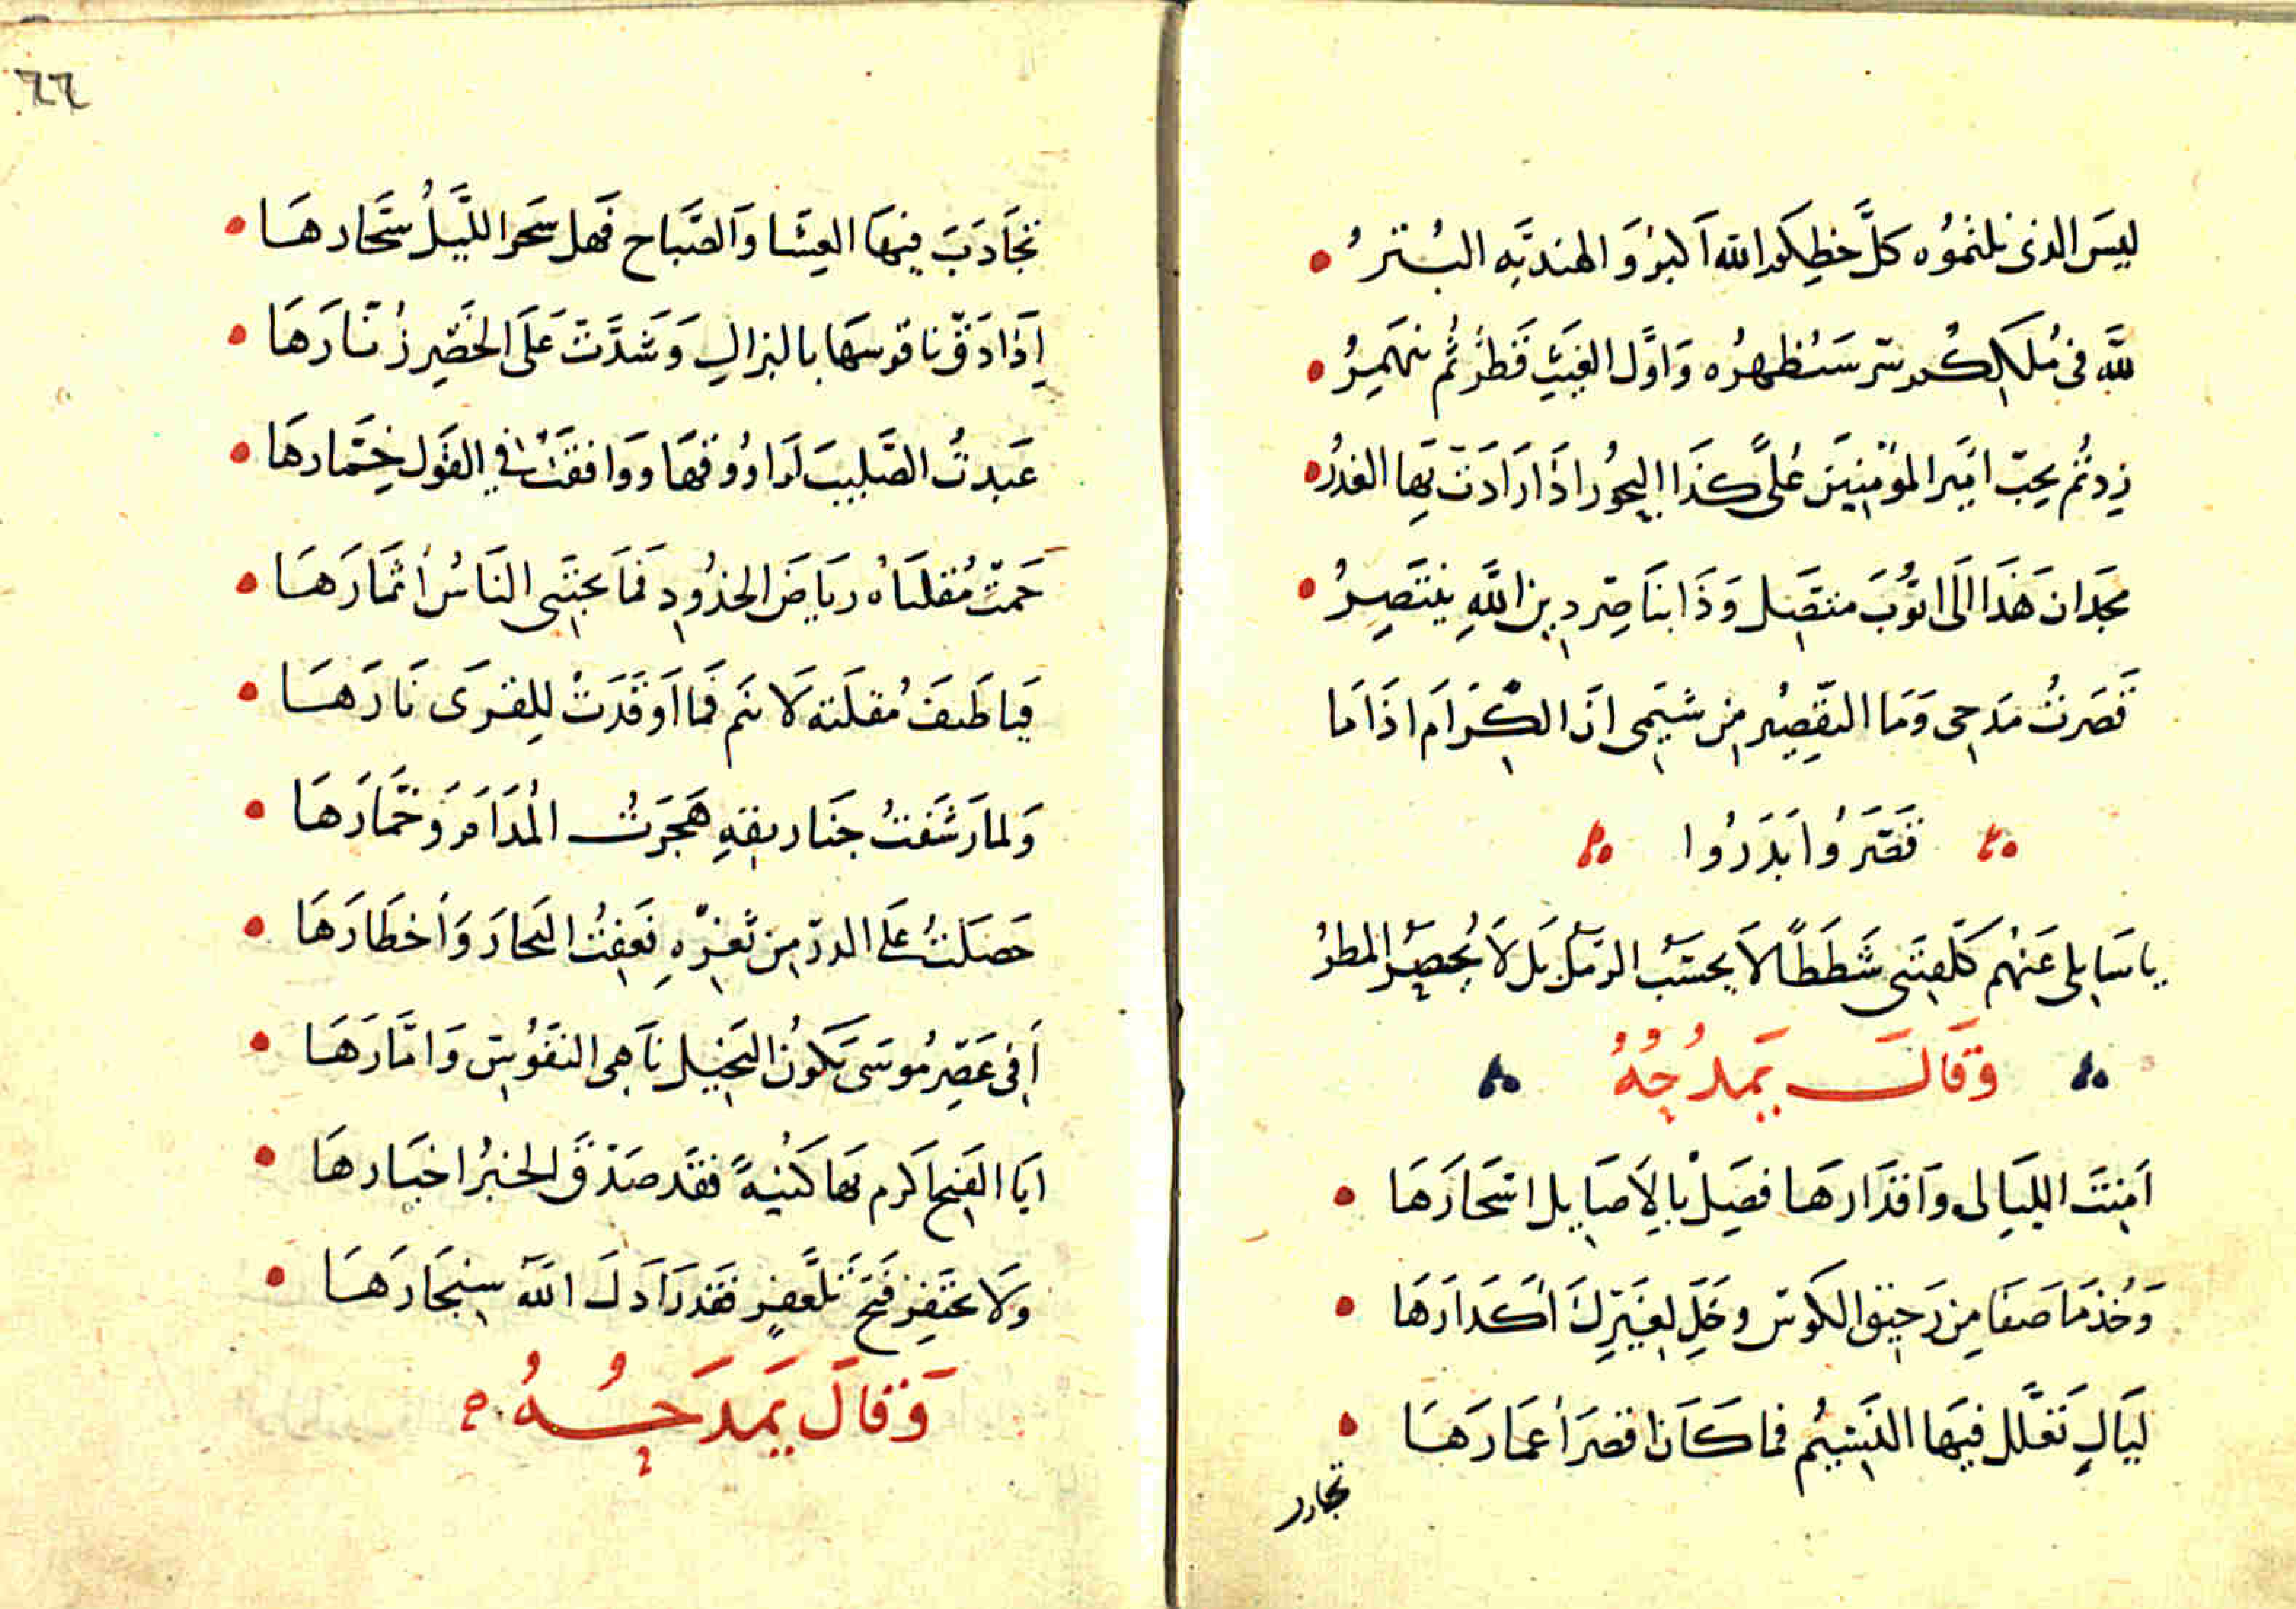 ليسَ الذى نلثمُوُه كلَّ خطِكم الله اَكبرُ وَ الهنديَّه البُترُ
للهَّ فى مُلككُم سر سَنُظهرُه وَاوَّل الغَيثِ قَطرُ ثُم يَنهَمِرُ
زِدتُم بحِبّ اميَر المؤمِنِيَن عُلىً كَذَا البحوُر اذَا زَادَت بَها الغدرُ
مَجدَان هَذَا الَى ايّوُبَ متصَّل وَذَا بنَاصِر دِين اللَّهِ يَنتَصِرُ
قَصَرتُ مَدحِى وَمَا التقَصِير مِن شيَمِى انَ الكِرَامَ اذَا مَا
قصَّرَوُا بَدَرُوا
يا سَايلى عَنهُم كَلّفتَنى شَطَطاً لاَ يحسَبُ الرَمل بَل لاَ يُحصَرُ المطرُ
وَقَالَ يَمدُحُهُ
اَمِنتَ الليَالى وَاقدَارهَا فصِلْ بِالاَصَايل اسَحَارَهَا
وَخُذ مَا صَفَا مِن رَحيق الكوس وخَلِّ لِغيَرِكَ اَكَدَارَهَا
ليَالٍ تَعَلَّل فيهَا النَسيمُ فما كَانَ اقصَرَ اَعمَارَهَا
تجادب
٦٦
تجَاَدَبَ فيهَا العِشَا وَالصَّباح فَهل سَحَر الليَّلُ سَحَّارهَا
اِذَا دَقّ ناقوسهَا بالبزالِ وَشَدَّتْ عَلَى الخَصِر زُنَّارَهَا
عَبدتُ الصَّليبَ لَدا وُوقهَا ووَافقتُ في القوَل خَمّارهَا
حَمتْ مُقلتَاهُ ريَاضَ الخدُودِ فَمَا يَجتَنى النَاسُ اَثمَارَهَا
فيَا طَيفَ مُقلَته لَا نَم فَما اَوقَدَتْ لِلقرَى نَارَهَا
وَلما رَشَفتُ جنَا ريقهِ هَجَرتُ المُدَامَ وَخَمَّارَهَا
حَصَلتُ عَلى الدرّ مِن ثَغرِهِ نَعِفتُ البحَارَ وَاَخطَارَهَا
اَفِى عَصِر مُوسَى يَكَونُ البَخيل نَاَهِى النفَوُسِ وَامَّارَهَا
ايَا الفَتح اَكرم بهَا كَنُيهً فقَد صَدّقَ الخبرُ اخبَارهَا
وَلَا تحتَقِر فَتحَ تَلَّعفرٍ فَقَد رَادَلَ اللهَ سِنجَارَهَا
وَقالَ يَمدَحُهُ